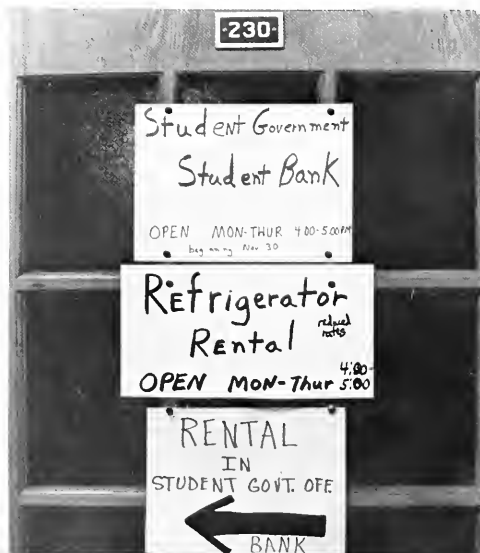 ·230·
Student Government
Student Bank
OPEN MON-THUR 4:00-5:00PM
beginning Nov 30
REfrigerator
REntal
reduced
rates
OPEN MON-Thur 4:00
5:00
RENTAL
IN
STUDENT GOVT. OFF.
BANK